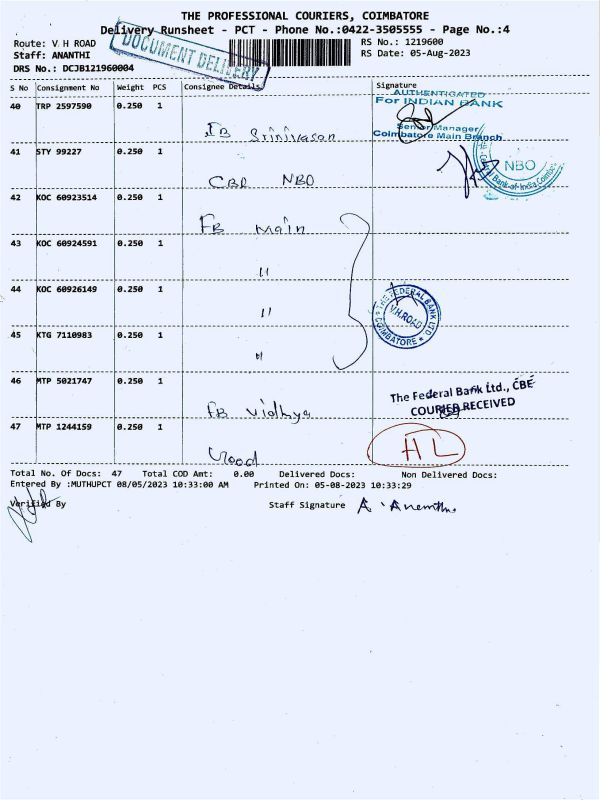 THE PROFESSIONAL COURIERS, COIMBATORE
Delivery Runsheet - PCT - Phone No.:0422-3505555 - Page No.:4
Route: V H ROAD
RS No.: 1219600
Staff: ANANTHI
RS Date: 05-Aug-2023
DRS No.: DCJB121960004
DOCUMENT DELIVERY
S No Consignment No Weight PCS Consignee Details Signature
40 TRP 2597590 0.250 1
AUTHENTICATED
For INDIAN BANK
Senior Manager
Coimbatore Main Branch
IB Srinivasan
41 STY 99227 0.250 1
NBO
CBE NBO
42 KOC 60923514 0.250 1
FB Main
43 KOC 60924591 0.250 1
"
44 KOC 60926149 0.250 1
"
THE FEDERAL BANK LTD
V.H.ROAD
COIMBATORE
45 KTG 7110983 0.250 1
"
46 MTP 5021747 0.250 1
The Federal Bank Ltd., CBE
COURIER RECEIVED
FB Vidhya
47 MTP 1244159 0.250 1
HL
Total No. Of Docs: 47 Total COD Amt: 0.00 Delivered Docs: Non Delivered Docs:
Entered By :MUTHUPCT 08/05/2023 10:33:00 AM Printed On: 05-08-2023 10:33:29
Verified By
Staff Signature